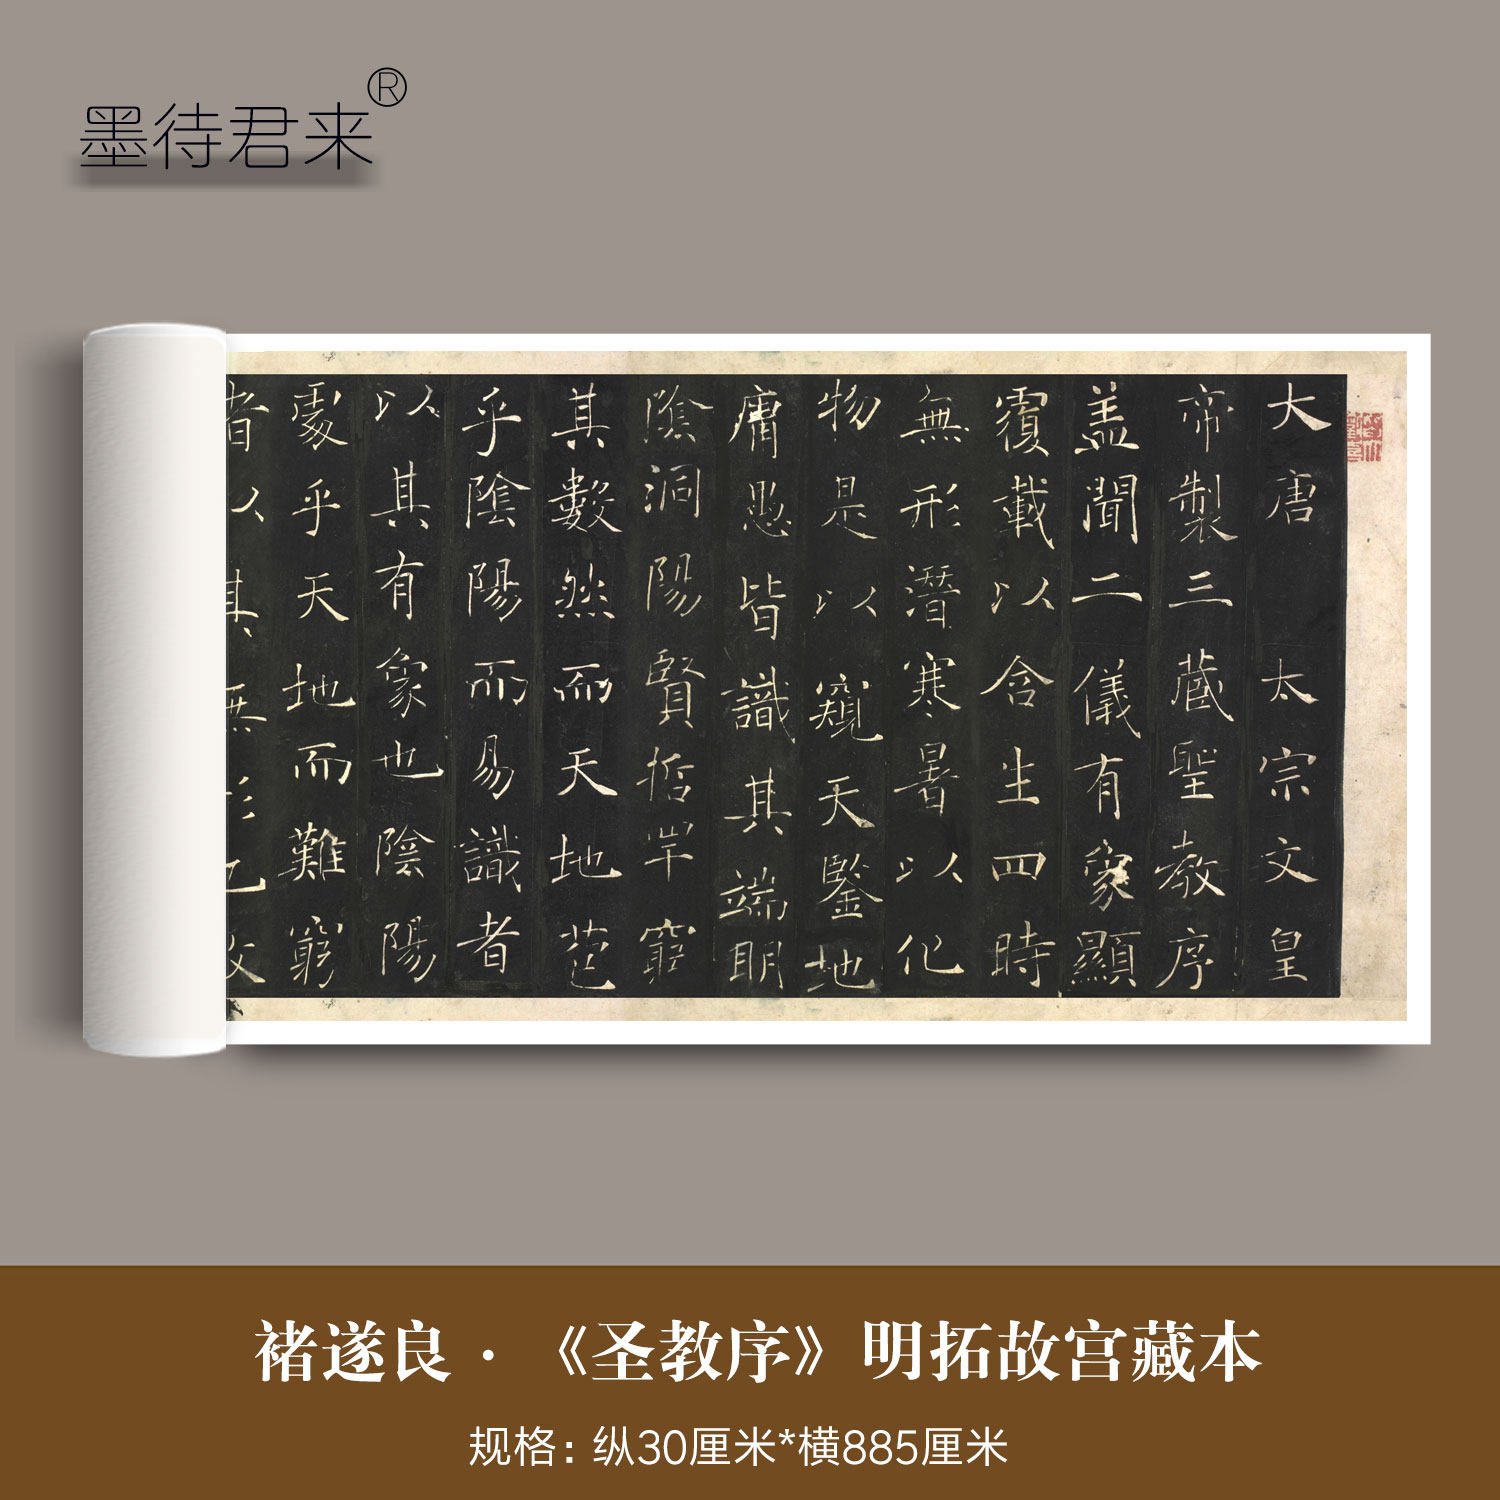 墨待君来®
大唐太宗文皇
帝製三藏聖教序
盖聞二儀有象顯
覆載以含生四時
無形潛寒暑以化
物是以窺天鑒地
庸愚皆識其端明
陰洞陽賢哲罕窮
其數然而天地苞
乎陰陽而易識者
以其有象也陰陽
處乎天地而難窮
者以其無形也故
褚遂良·《圣教序》明拓故宫藏本
规格：纵30厘米*横885厘米